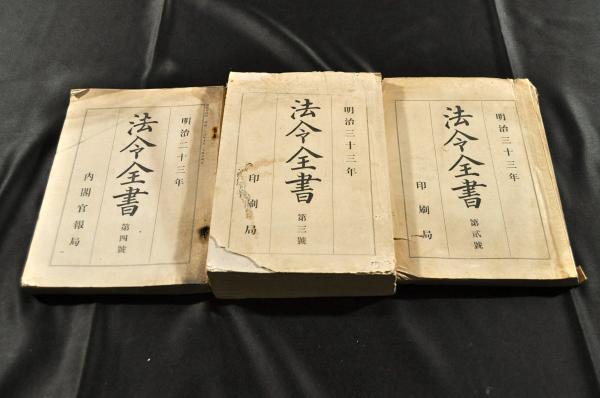 明治二十三年
法令全書
第四號
內閣官報局
明治三十三年
法令全書
第三號
印刷局
明治三十三年
法令全書
第貳號
印刷局